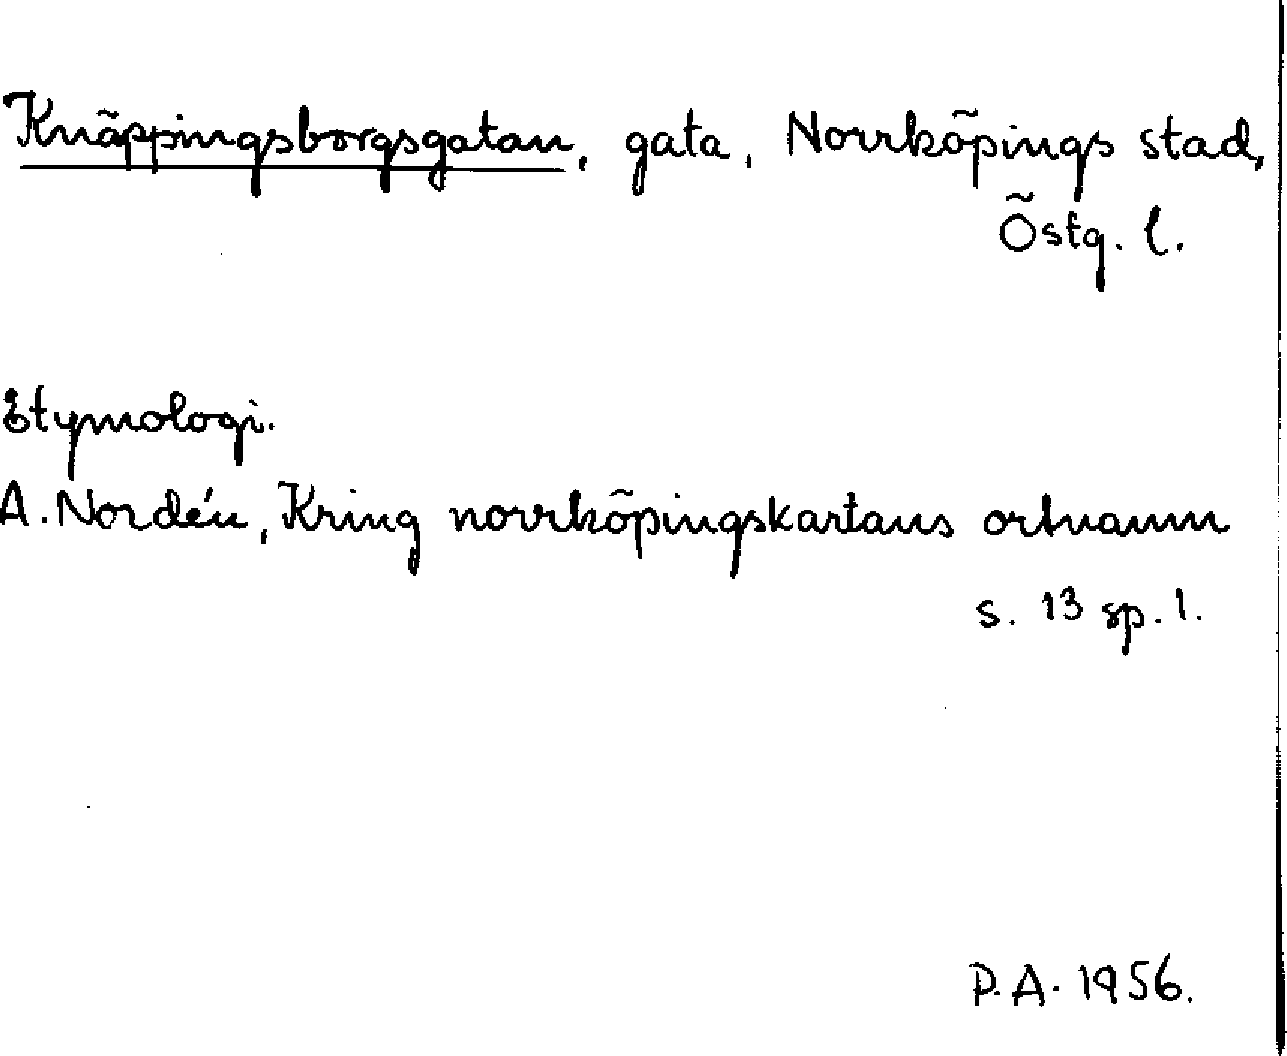 Knäppingsborgsgatan, gata, Norrköpings stad,
Östg. l.
Etymologi.
A. Nordén, Kring norrköpingskartans ortnamn
s. 13 sp. 1.
P.A. 1956.